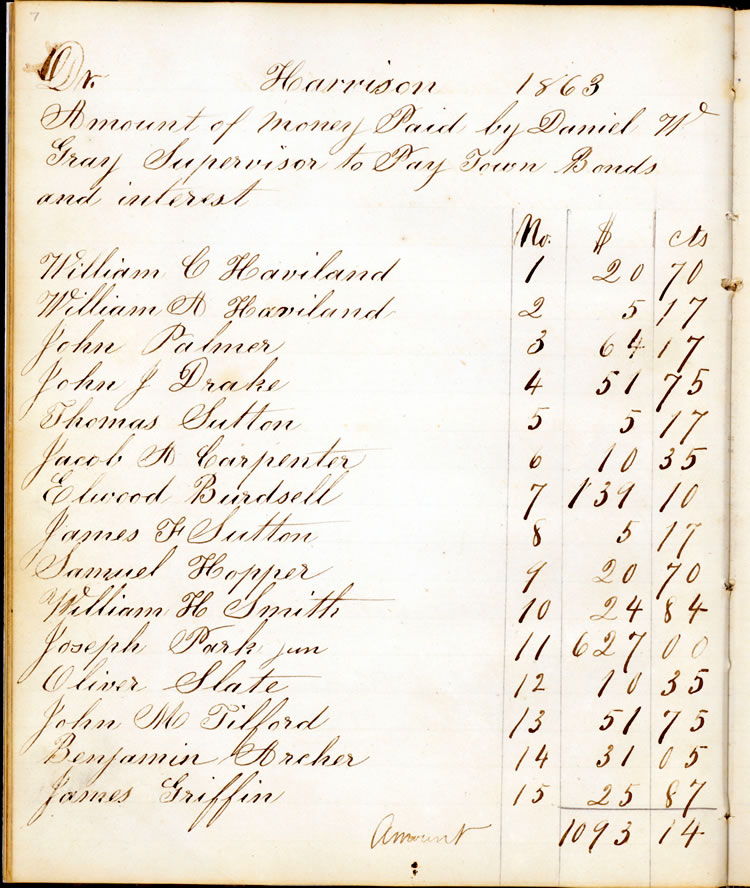 7
Dr. Harrison 1863
Amount of money Paid by Daniel W
Gray Supervisor to Pay Town Bonds
and interest
No. $ cts
William C Haviland 1 20 70
William A Haviland 2 5 17
John Palmer 3 64 17
John J Drake 4 51 75
Thomas Sutton 5 5 17
Jacob A Carpenter 6 10 35
Elwood Burdsell 7 139 10
James F Sutton 8 5 17
Samuel Hopper 9 20 70
William H Smith 10 24 84
Joseph Park jun 11 627 00
Oliver Slate 12 10 35
John M Tilford 13 51 75
Benjamin Archer 14 31 05
James Griffin 15 25 87
Amount 1093 14